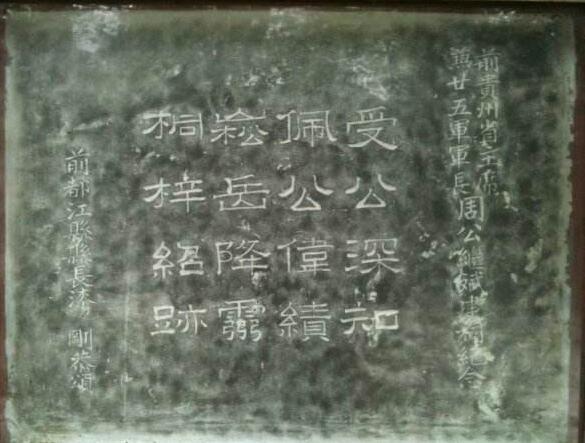 前貴州省主席
兼廿五軍軍長周公繼斌建祠紀念
受公深知
佩公偉績
崧岳降靈
桐梓紹跡
前都江縣縣長 剛恭頌